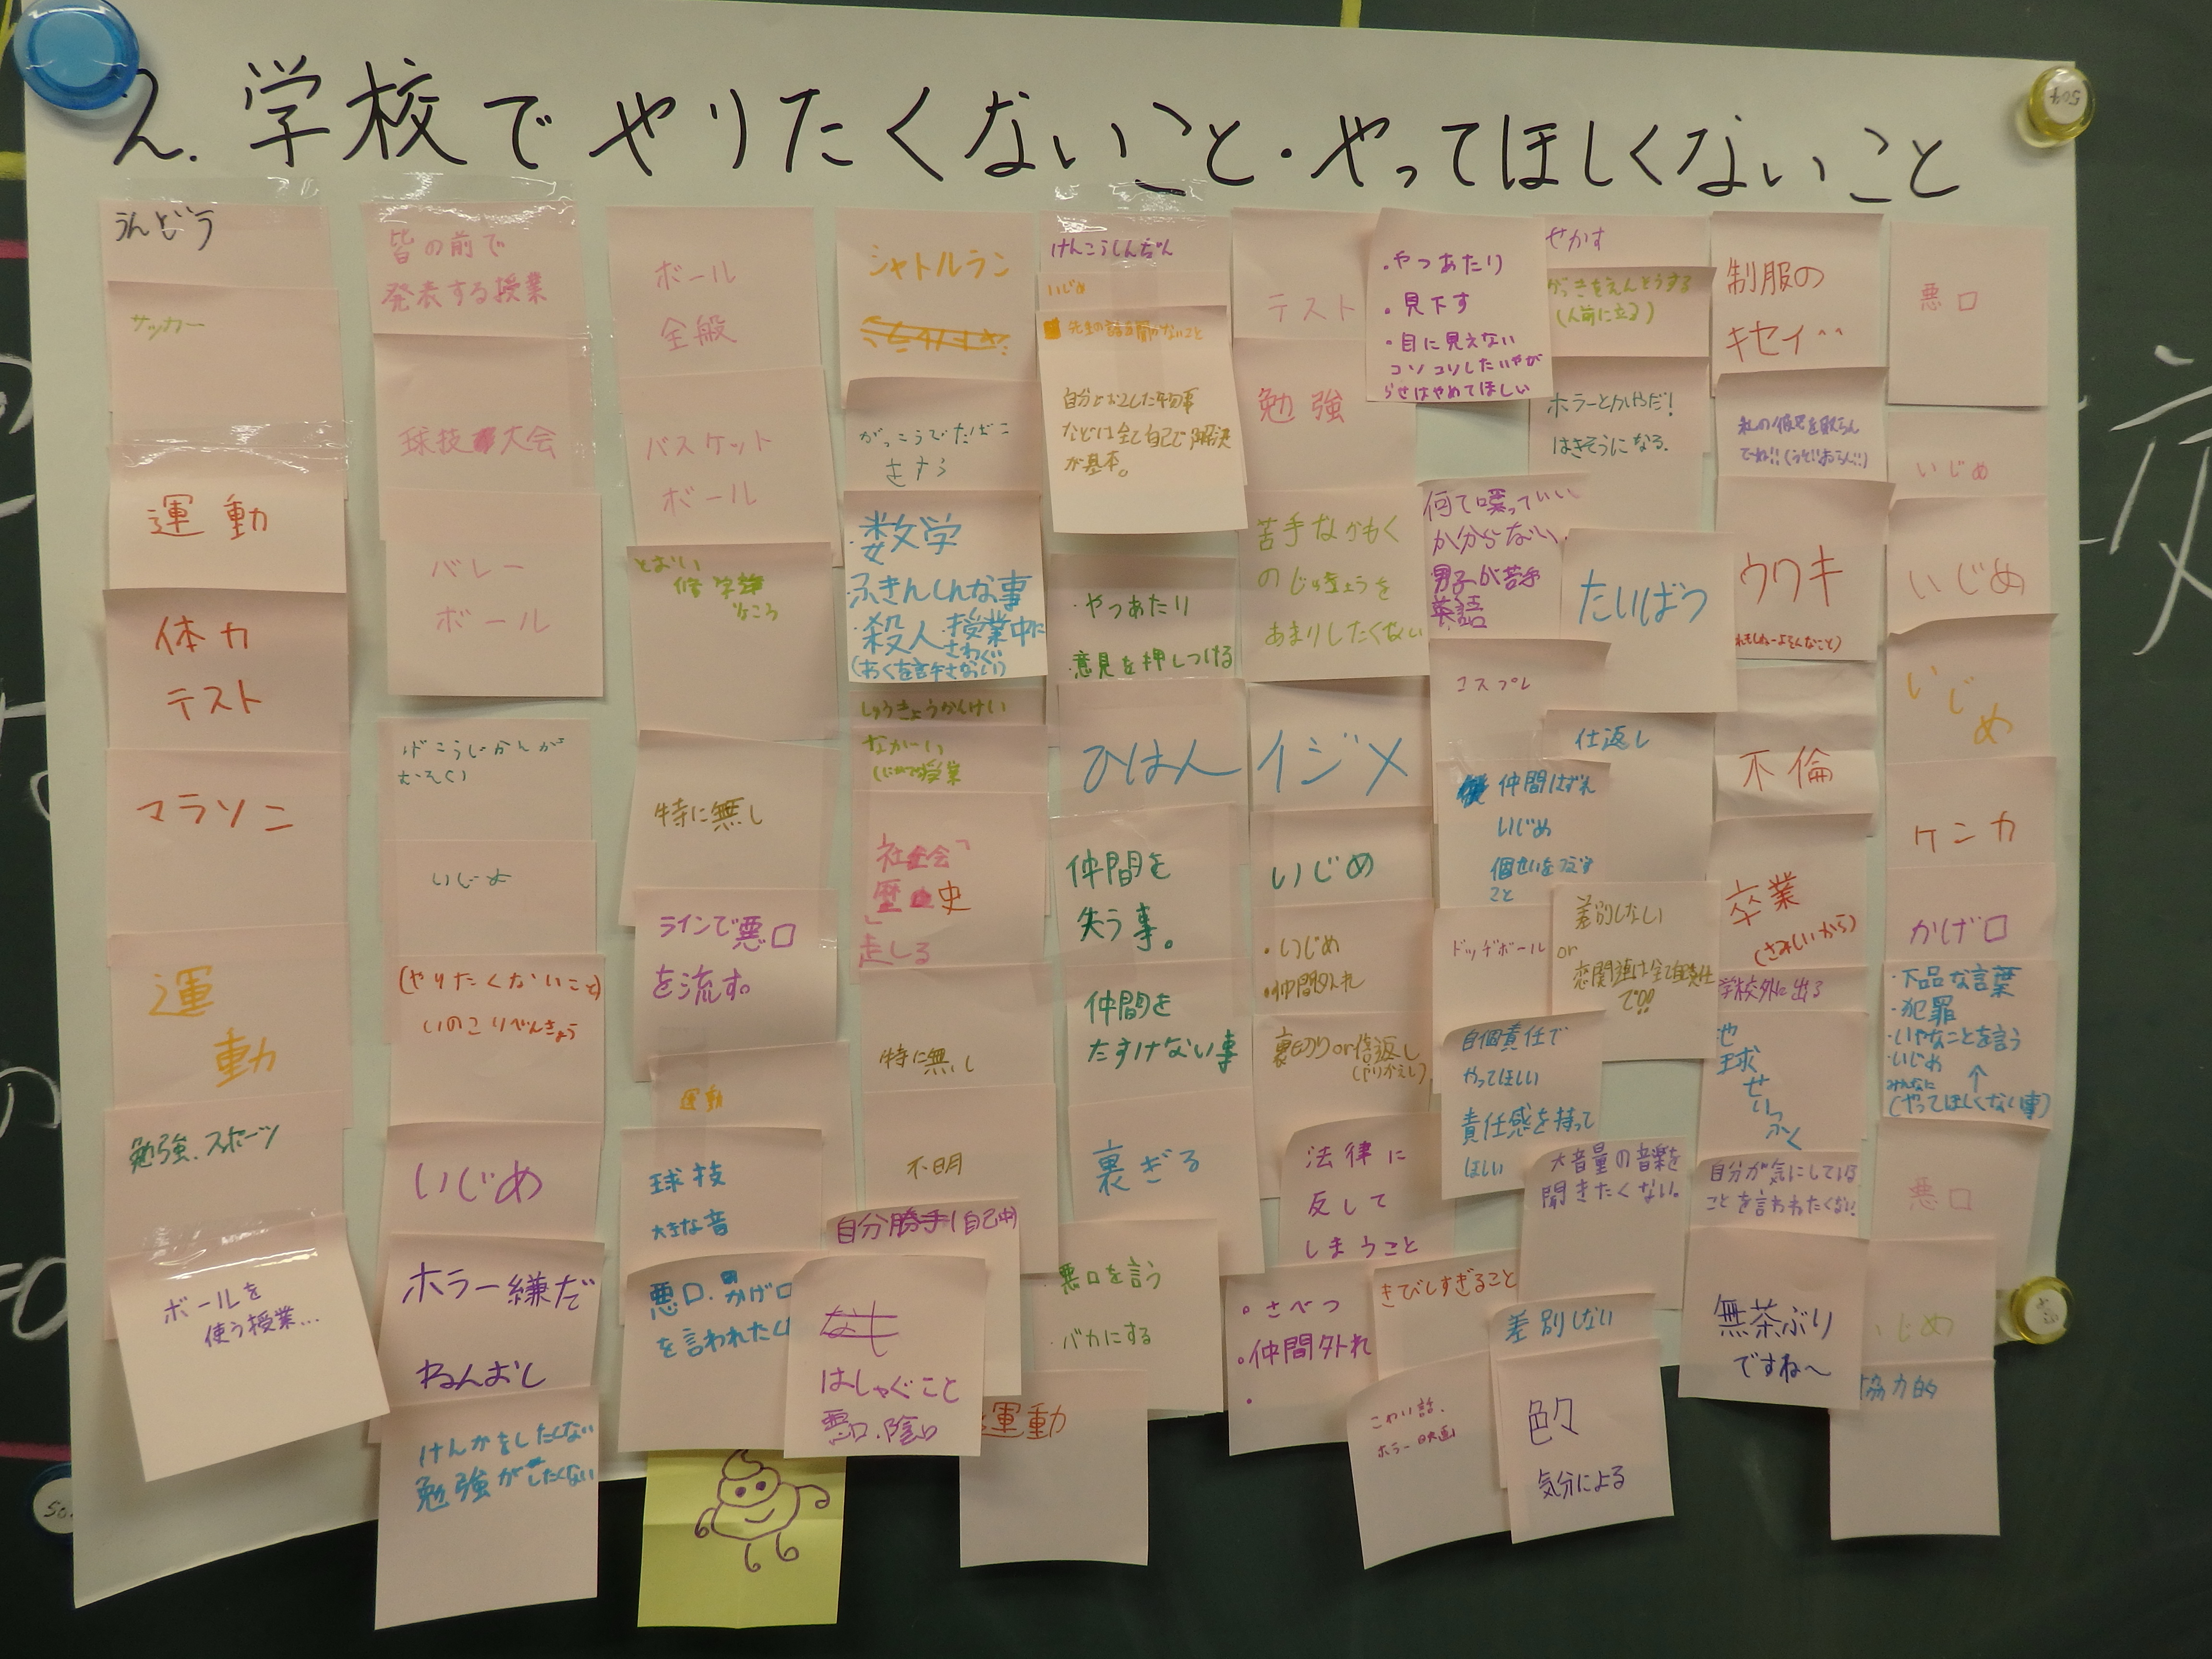 2. 学校でやりたくないこと・やってほしくないこと
うんどう
サッカー
運動
体力
テスト
マラソン
運
動
勉強、スポーツ
ボールを
使う授業…
皆の前で
発表する授業
球技大会
バレー
ボール
いじめ
(やりたくないこと)
いのこりべんきょう
いじめ
ホラー嫌だ
ねんおし
けんかをしたくない
勉強がしたくない
ボール
全般
バスケット
ボール
とおい
特に無し
ラインで悪口
を流す。
運動
球技
大きな音
悪口、かげ口
を言われたく
シャトルラン
がっこうでたばこ
さすう
・数学
ふきんしんな事
・殺人、授業中に
さわぐ
しゅうきょうかんけい
ながーい
社会
歴史
走しる
特に無し
不明
自分勝手(自己中)
はしゃぐこと
悪口、陰口
運動
けんこうしんだん
いじめ
自分とおこした事
などは全て自己で解決
が基本。
・やつあたり
・意見を押しつける
ひはん
仲間を
失う事。
仲間を
たすけない事
裏ぎる
・悪口を言う
・バカにする
テスト
勉強
苦手なかもく
のじゅぎょうを
あまりしたくない
イジメ
いじめ
・いじめ
・仲間外れ
裏切りor仕返し
(やりかえし)
法律に
反して
しまうこと
・さべつ
・仲間外れ
・
・やつあたり
・見下す
・目に見えない
コソコソしたいやが
らせはやめてほしい
何て喋っていい
か分からない。
男子が苦手
英語
コスプレ
仲間はずれ
いじめ
個せいをつぶす
こと
ドッヂボール
自個責任で
やってほしい
責任感を持って
ほしい
きびしすぎること
こわい話、
ホラー映画
せかす
がっきをえんそうする
(人前に立る)
ホラーとかやだ!
はきそうになる。
たいばつ
仕返し
差別しない
or
恋関連は全て自己責任
で!!
大音量の音楽を
聞きたくない。
差別しない
色々
気分による
制服の
キセイ…
ウワキ
不倫
卒業
(さみしいから)
学校外に出る
地
球
せ
い
ふく
自分が気にしている
ことを言われたくない!
無茶ぶり
ですね〜
悪口
いじめ
いじめ
いじめ
ケンカ
かげ口
・下品な言葉
・犯罪
・いやなことを言う
・いじめ
みんなに ↑
(やってほしくない事)
悪口
いじめ
協力的